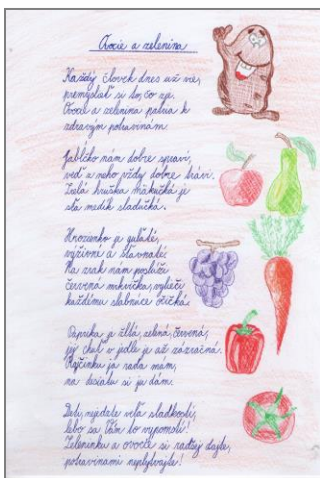 Ovocie a zelenina
Každý človek dnes už vie,
premyslať si to, čo zje.
Ovocie a zelenina patria k
zdravým potravinám.
Jabĺčko nám dobre spraví,
veď z neho vždy dobre trávi.
Zrelá hruška mäkučká je
sťa medík sladučká.
Hroznienko je guľaté,
výživné a šťavnaté.
Na zrak nám poslúži
červená mrkvička, vylieči
každému slabnúce očičká.
Paprika je žltá, zelená, červená,
jej chuť v jedle je až zázračná.
Rajčinku ja rada mám,
na desiatu si ju dám.
Deti, nejedzte veľa sladkostí,
lebo sa Vám to vypomstí!
Zeleninku a ovocie si radšej dajte,
potravinami neplytvajte!